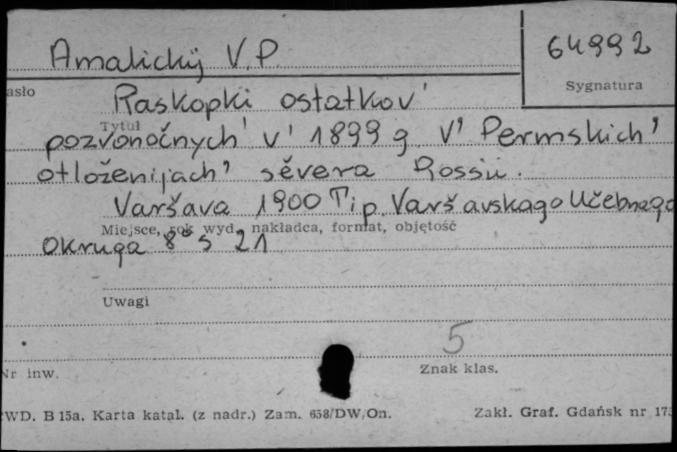 Amalickij V. P.
64992
asło
Sygnatura
Raskopki ostatkov'
Tytuł
pozvonočnych' v' 1899 g. v' Permskich'
otloženijach' sěvera Rossii.
Varšava 1900 Tip. Varšavskago Učebnago
Miejsce, rok wyd., nakładca, format, objętość
Okruga 8° s 21
Uwagi
5
Nr inw.
Znak klas.
WD. B 15a. Karta katal. (z nadr.) Zam. 658/DW/On.
Zakł. Graf. Gdańsk nr 173